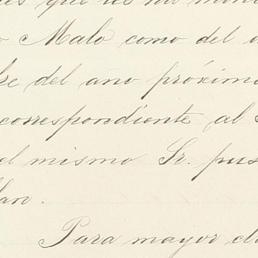 que
Malo como del
del año próximo
correspondiente al
el mismo Sr. pus
Para mayor cl